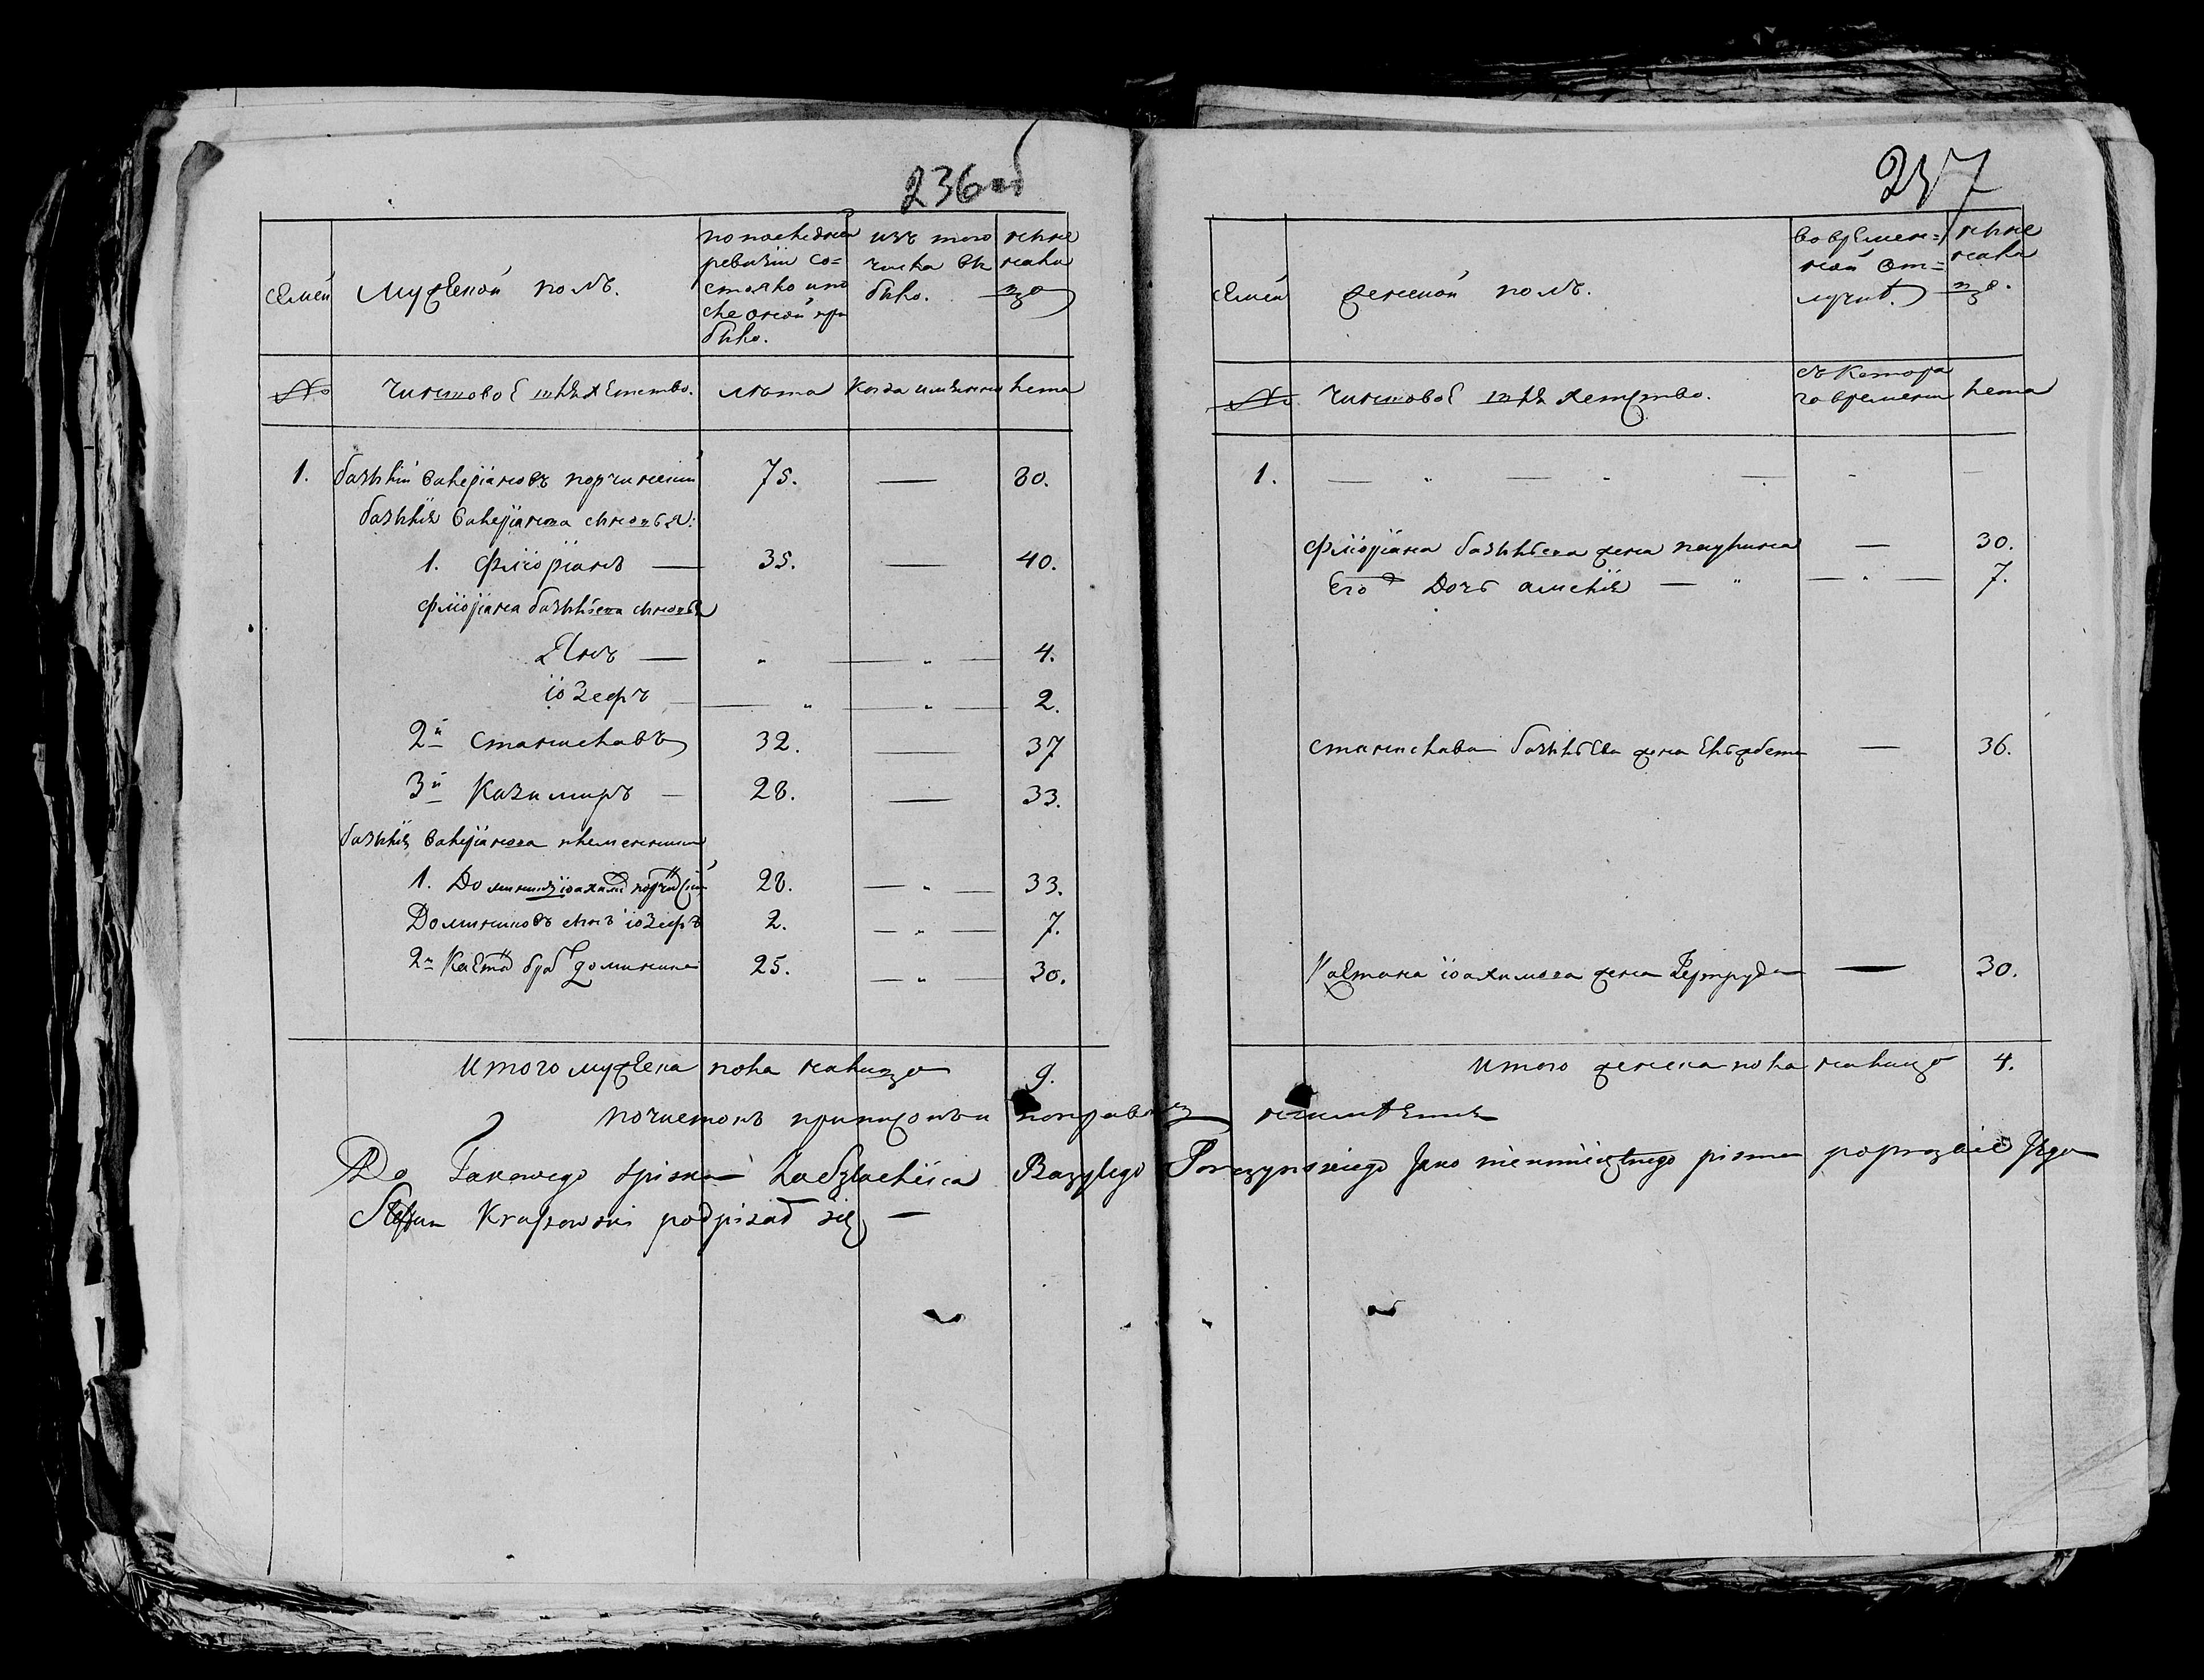 236 об
семей
Мужеской полъ.
по последней
ревизии со=
стояло и по
сле оной при
было.
изъ того
числа вы
было.
ныне
нали
цо
№
чиновое шляхетство.
лѣта
Когда именно
лета
1. базылий валериановъ порчинский 75. — 80.
базылия валериянова сыновья:
1. Флиориянъ — 35. — 40.
Флиорияна базылиева сыновья
Янъ — „ — „ — 4.
иозефъ — „ — „ — 2.
2й Станиславъ 32. — 37
3й Казимиръ — 28. — 33.
базылия валериянова племенники
1. Доминикъ иоахимов порчинский 28. — „ — 33.
Доминиковъ сынъ иозефъ 2. — „ — 7.
2й Каетан брат доминика 25. — „ — 30.
Итого мужеска пола налицо 9.
237
семей
женской полъ.
во времен=
ной от=
лучке.
ныне
нали
цо.
№
чиновое шляхетство.
съ котора
го времени
лета
1. — „ — „ — „ —
Флиорияна базылиева жена паулина — 30.
Его Дочь амелия — „ — „ — 7.
станислава базылиева жена елжбета — 36.
Каетана иоахимова жена Гертруда — 30.
Итого женска пола налицо 4.
Do Takowego spiska Za Szlachcica Bazylego Porczynskiego Jako nieumieiętnego pisma po prozbie Jego
Stefan Kraszowski podpisał się —